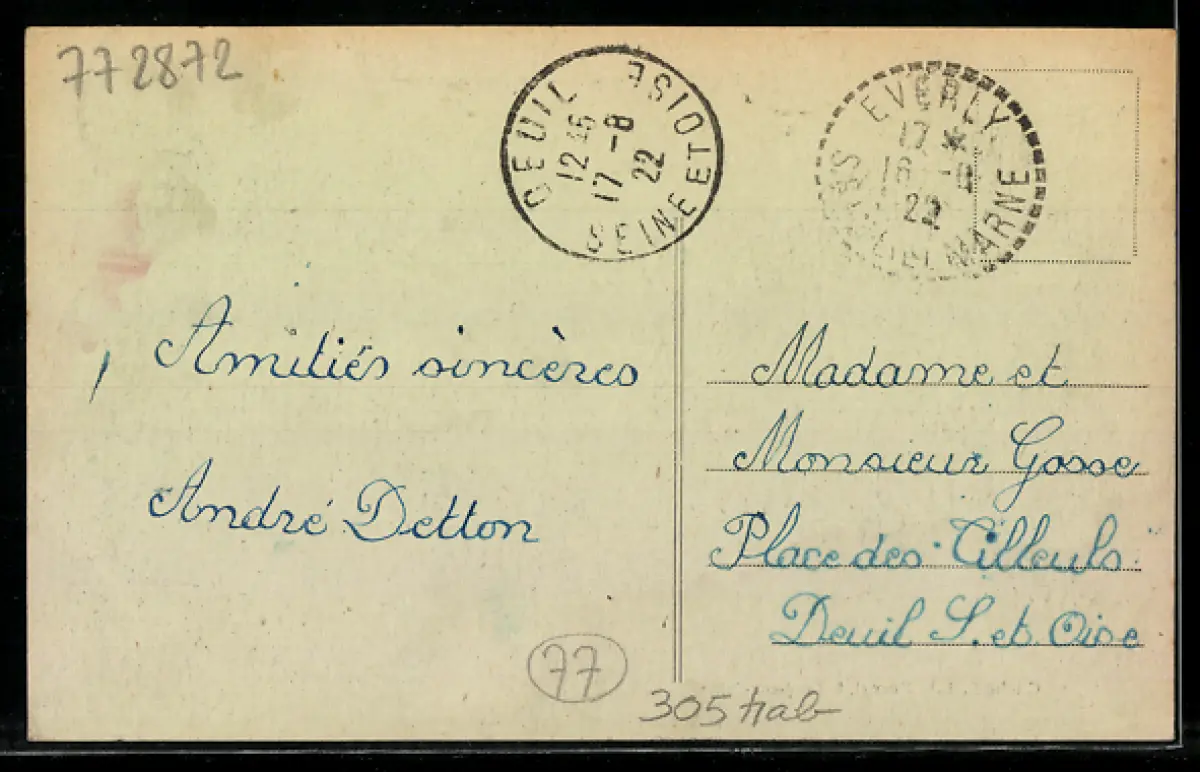 772872
DEUIL SEINE ET OISE
12 45
17 -8
22
EVERLY MARNE
17 *
16 -8
22
Amitiés sincères
André Detton
Madame et
Monsieur Gosse
Place des Tilleuls
Deuil S. et Oise
77
305 hab